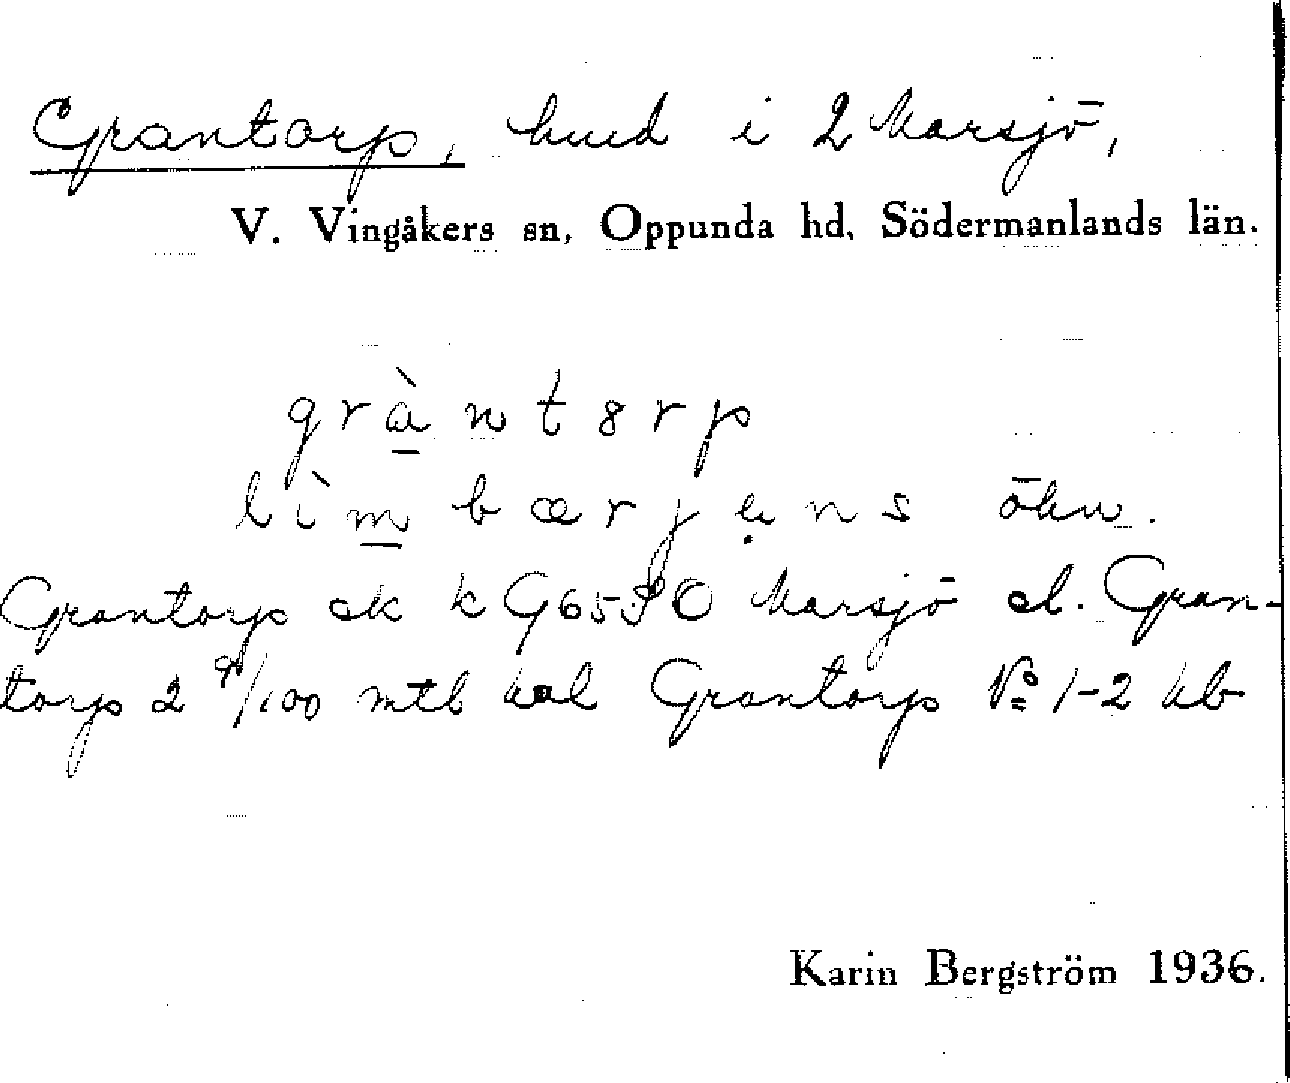 Grantorp, hmd i 2 Marsjö,
V. Vingåkers sn, Oppunda hd, Södermanlands län.
gràntorp
lìmbærjens ökn.
Grantorp ek k G6530 Marsjö el. Gran-
torp 2 9/100 mtl hal Grantorp No 1-2 hb
Karin Bergström 1936.